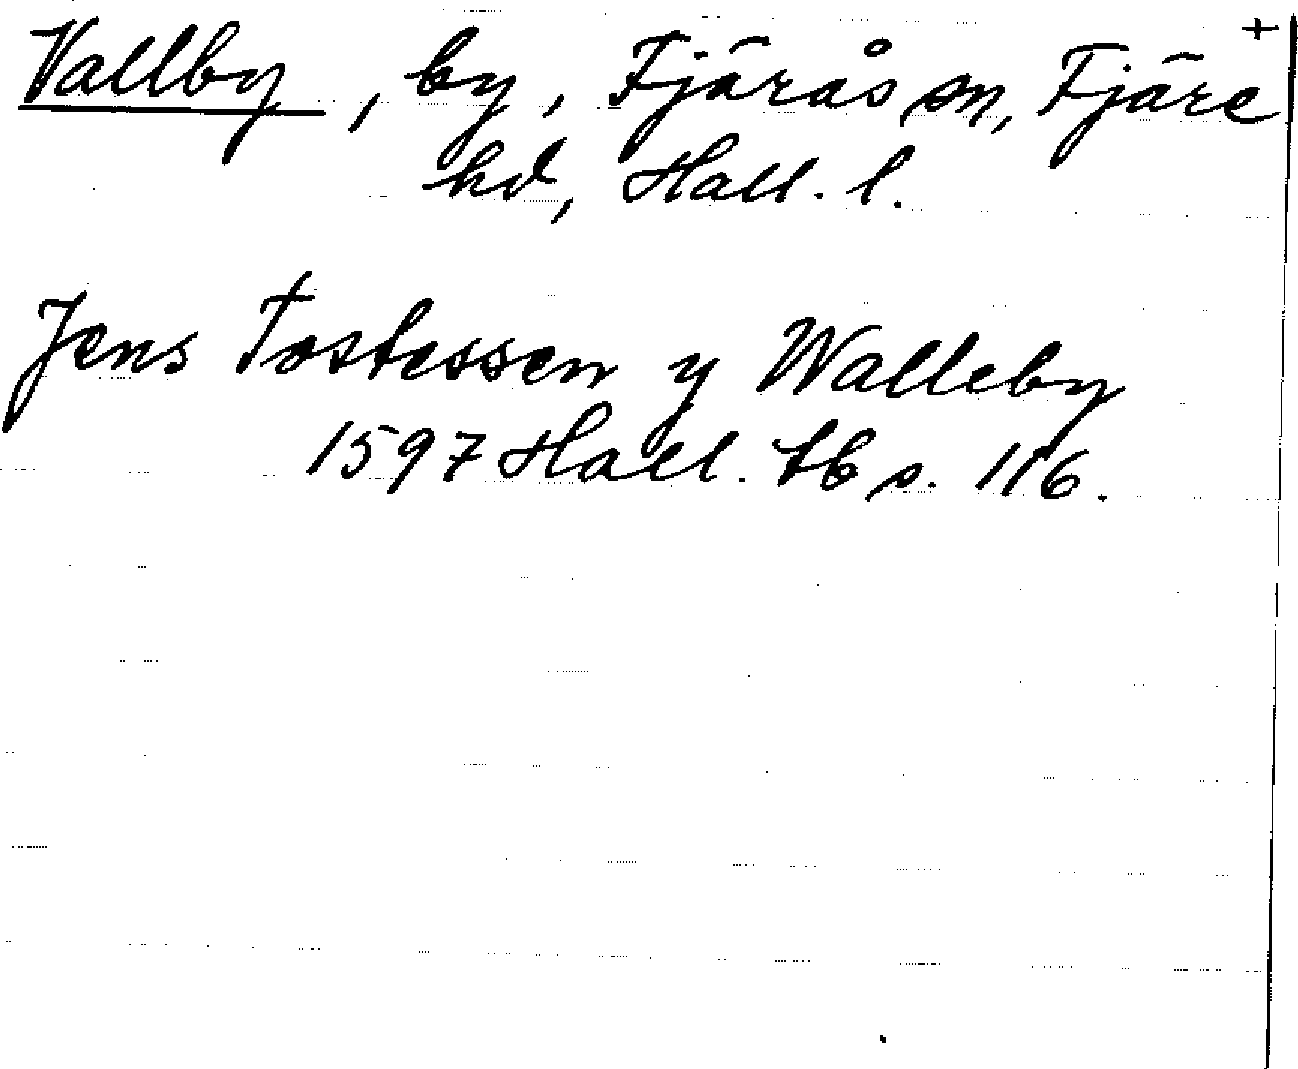 +
Vallby, by, Fjärås sn, Fjäre
hd, Hall. l.
Jens Tostessen y Walleby
1597 Hall. tb s. 116.